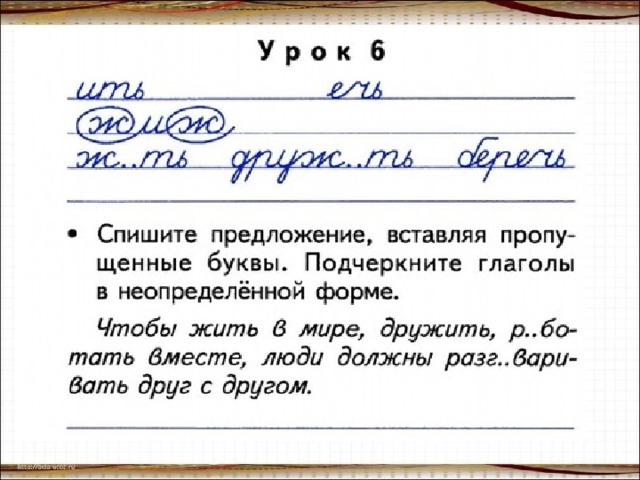 Урок 6
ить ечь
ж и ж
ж..ть друж..ть беречь
• Спишите предложение, вставляя пропу-
щенные буквы. Подчеркните глаголы
в неопределённой форме.
Чтобы жить в мире, дружить, р..бо-
тать вместе, люди должны разг..вари-
вать друг с другом.